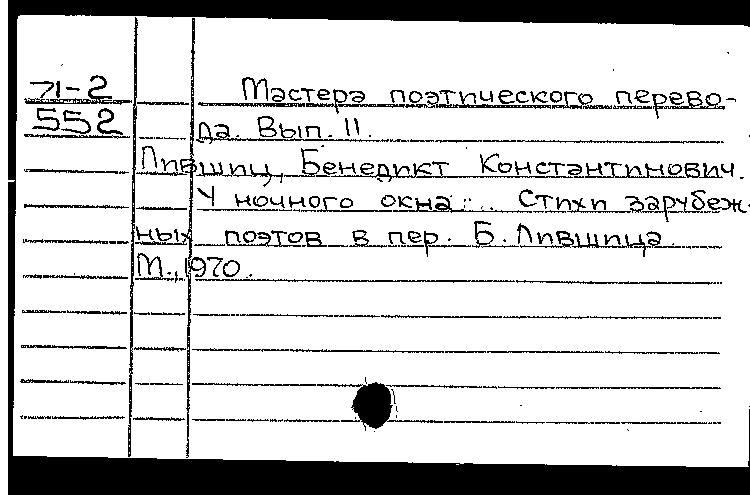 71-2
552
Мастера поэтического перево-
да. Вып. 11.
Лившиц, Бенедикт Константинович.
У ночного окна... Стихи зарубеж-
ных поэтов в пер. Б. Лившица
М., 1970.